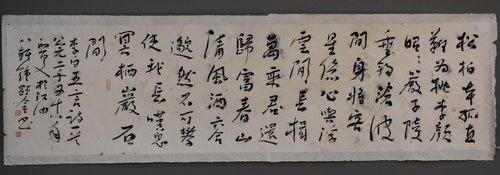 松柏本孤直
難为桃李颜
昭昭嚴子陵
垂钓滄波
間身将客
星隐心與浮
雲閒長揖
萬乘君還
歸富春山
清風洒六合
邈然不可攀
使我長嘆息
冥栖巖石
間
李白五言诗一首
公元二千